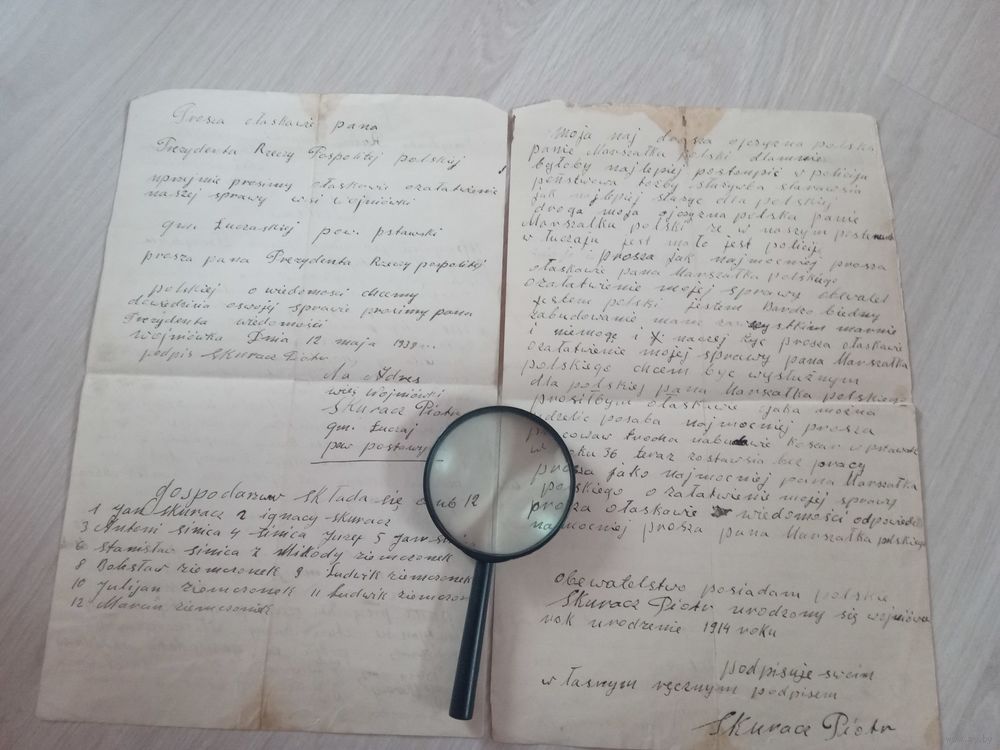 Prosza ołaskawie pana
Prezydenta Rzeczy Pospolitej polskiej
uprzejmie prosimy ołaskawie ozałatwienie
naszej sprawy wsi Wojniówki
gm. Łuczaskiej pow. pstawski
prosza pana Prezydenta Rzeczy pospolitej
polskiej o wiedomości chcemy
dowiedzieia oswojéj sprawie prosimy pana
Prezydenta wiedomości
Wojniówka Dnia 12 maja 1939
podpis Skuracz Piotr
Na Adres
wieś Wojniówki
Skuracz Piotr
gm. Łuczaj
pow postawy
gospodarzuw składa się 12
1 Jan Skuracz 2 ignacy skuracz
3 Antoni sinica 4 Sinica Juzef 5 Jan
6 Stanisław sinica 7 Mikody ziemczonek
8 Bolisław ziemczonek 9 Ludwik ziemczonek
10 Julijan ziemczonek 11 Ludwik
12 Marcin ziemczonek
moja naj drozsza ojczyzna polska
panie Marszałku Polski dlamnie
byłoby najlepiej postompić w policiju
państwowa
jak najlepiej służyć dla polskiej
droga moja ojczyzna polska panie
Marszałku polski że w naszym
w Łuczaju jest mało jest policij
i prosza jak najmocniej prosza
ołaskawie pana Marszałka polskiego
ozałatwienie mojej sprawy obwatel
jestem polski jestem Bardzo biedny
zabudowanie mam marnie
i niemogę i naczej żyć prosza ołaskawie
ozałatwienie mojej sprawy pana Marszałka
polskiego chcem być wysłużnym
dla polskiej pana Marszałka polskiego
prosiłbym ołaskawie jaka można
najmocniej prosza
trocha w
w roku 36 teraz zostawsia bez pracy
prosza jako najmocniej pana Marszałka
polskiego o załatwienie mojej sprawy
prosza ołaskawie wiedomości odpowiedzi
najmocniej prosza pana Marszałka polskiego
obewatelstwo posiadam polskie
Skuracz Piotr urodzony się wojniówka
rok urodzenie 1914 roku
podpisuje swoim
własnym ręcznym podpisem
Skuracz Piotr